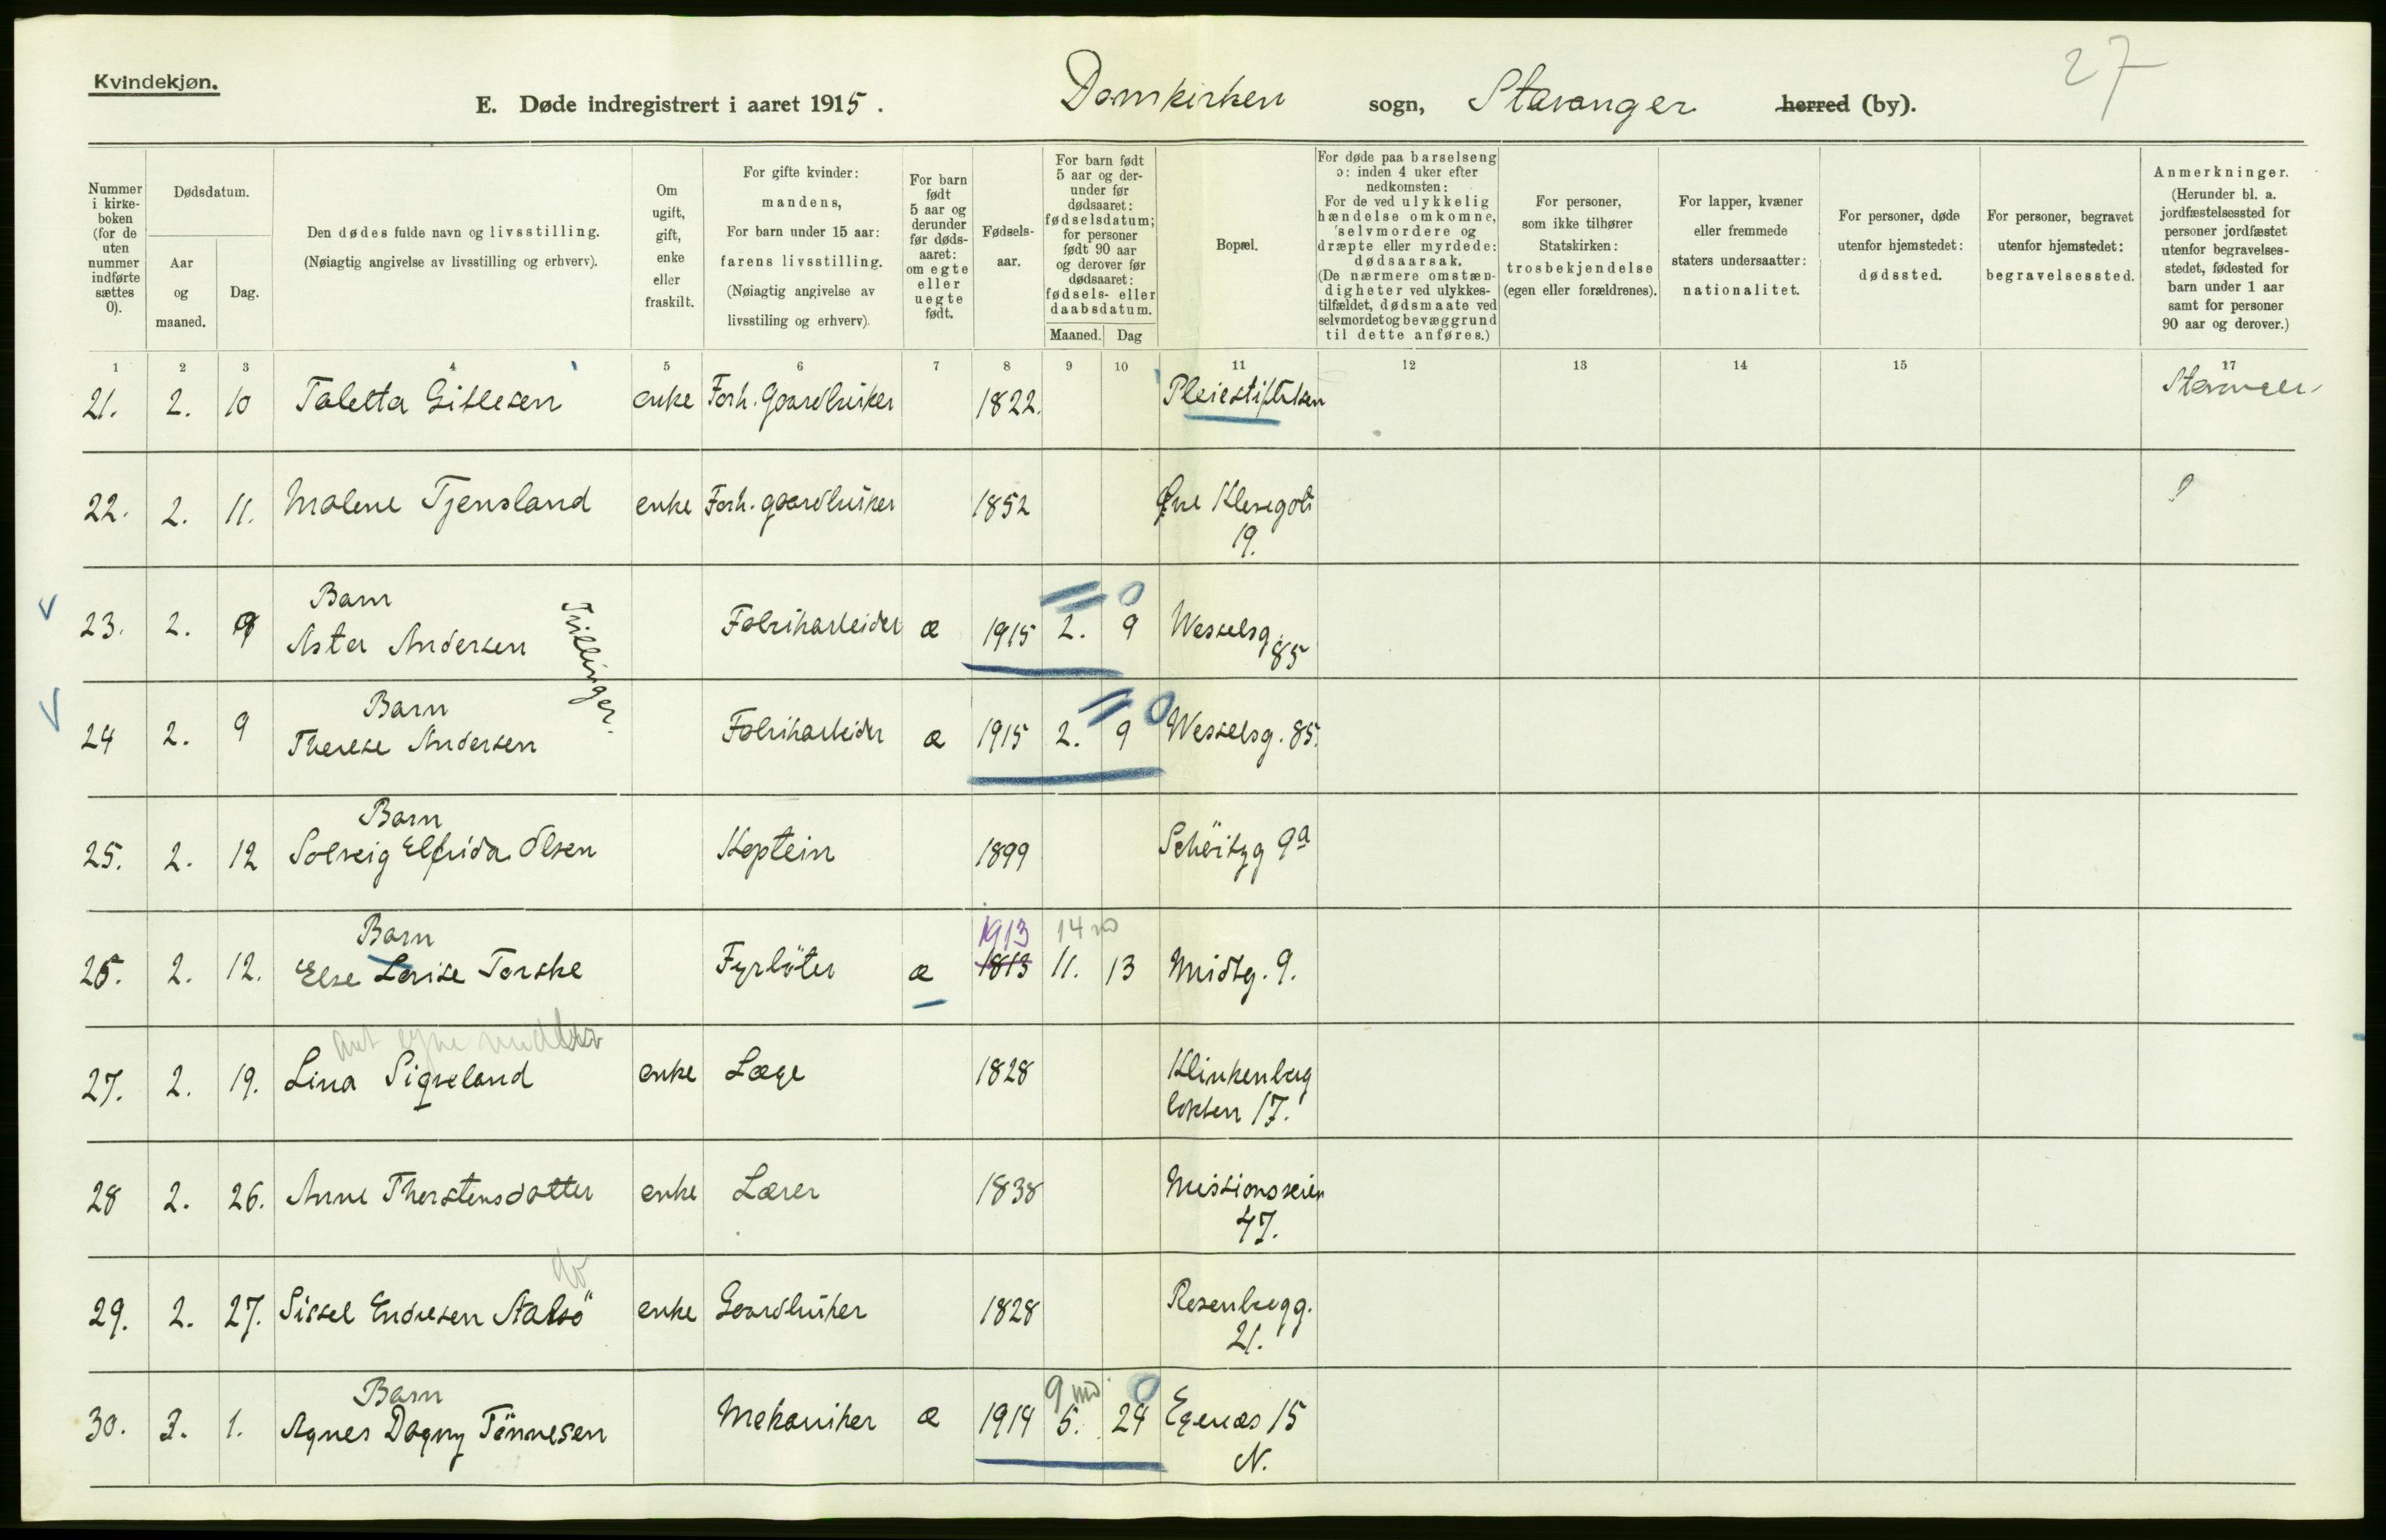 Kvindekjøn.
27
E. Døde indregistrert i aaret 1915. Domkirken sogn, Stavanger herred (by).
Nummer i kirkeboken (for de uten nummer indførte sættes 0).
Dødsdatum.
Aar og maaned.
Dag.
Den dødes fulde navn og livsstilling.
(Nøiagtig angivelse av livsstilling og erhverv).
Om ugift, gift, enke eller fraskilt.
For gifte kvinder: mandens,
For barn under 15 aar: farens livsstilling.
(Nøiagtig angivelse av livsstiling og erhverv).
For barn født 5 aar og derunder før dødsaaret: om egte eller uegte født.
Fødselsaar.
For barn født 5 aar og derunder før dødsaaret: fødselsdatum; for personer født 90 aar og derover før dødsaaret: fødsels- eller daabsdatum.
Maaned. Dag
Bopæl.
For døde paa barselseng ɔ: inden 4 uker efter nedkomsten: For de ved ulykkelig hændelse omkomne, selvmordere og dræpte eller myrdede: dødsaarsak. (De nærmere omstændigheter ved ulykkestilfældet, dødsmaate ved selvmordet og bevæggrund til dette anføres.)
For personer, som ikke tilhører Statskirken: trosbekjendelse (egen eller forældrenes).
For lapper, kvæner eller fremmede staters undersaatter: nationalitet.
For personer, døde utenfor hjemstedet: dødssted.
For personer, begravet utenfor hjemstedet: begravelsessted.
Anmerkninger.
(Herunder bl. a. jordfæstelsessted for personer jordfæstet utenfor begravelsesstedet, fødested for barn under 1 aar samt for personer 90 aar og derover.)
1 2 3 4 5 6 7 8 9 10 11 12 13 14 15 17
21. 2. 10 Taletta Gitlesen enke Forh. Gaardbruker 1822. Pleiestiftelsen Stavanger
22. 2. 11. Malene Tjensland enke Forh. gaardbruker 1852 Øvre Klevegt
19. ?
Barn
23. 2. 9 Aster Andersen Trillinger. Fabrikarbeider æ 1915 2. 9 Wesselsg. 85
0
Barn
24 2. 9 Therese Andersen Fabrikarbeider æ 1915 2. 9 Wesselsg. 85.
0
Barn
25. 2. 12 Solveig Elfrida Olsen Kaptein 1899 9a
Barn
1913 14 md
26. 2. 12. Else Lovise Torske Fyrbøter æ 1813 11. 13 Midtg. 9.
27. 2. 19. Lina Sigveland enke Læge 1828 Klinkenberg
bakken 17.
28 2. 26. Anne Thorstensdatter enke Lærer 1838 Missionsveien
47.
do
29. 2. 27. Sissel Endresen enke Gaardbruker 1828 Rosenbergg.
21.
Barn
9 md. 0
30. 3. 1. Agnes Dagny Tønnesen Mekaniker æ 1914 5. 24 Egenæs 15
N.